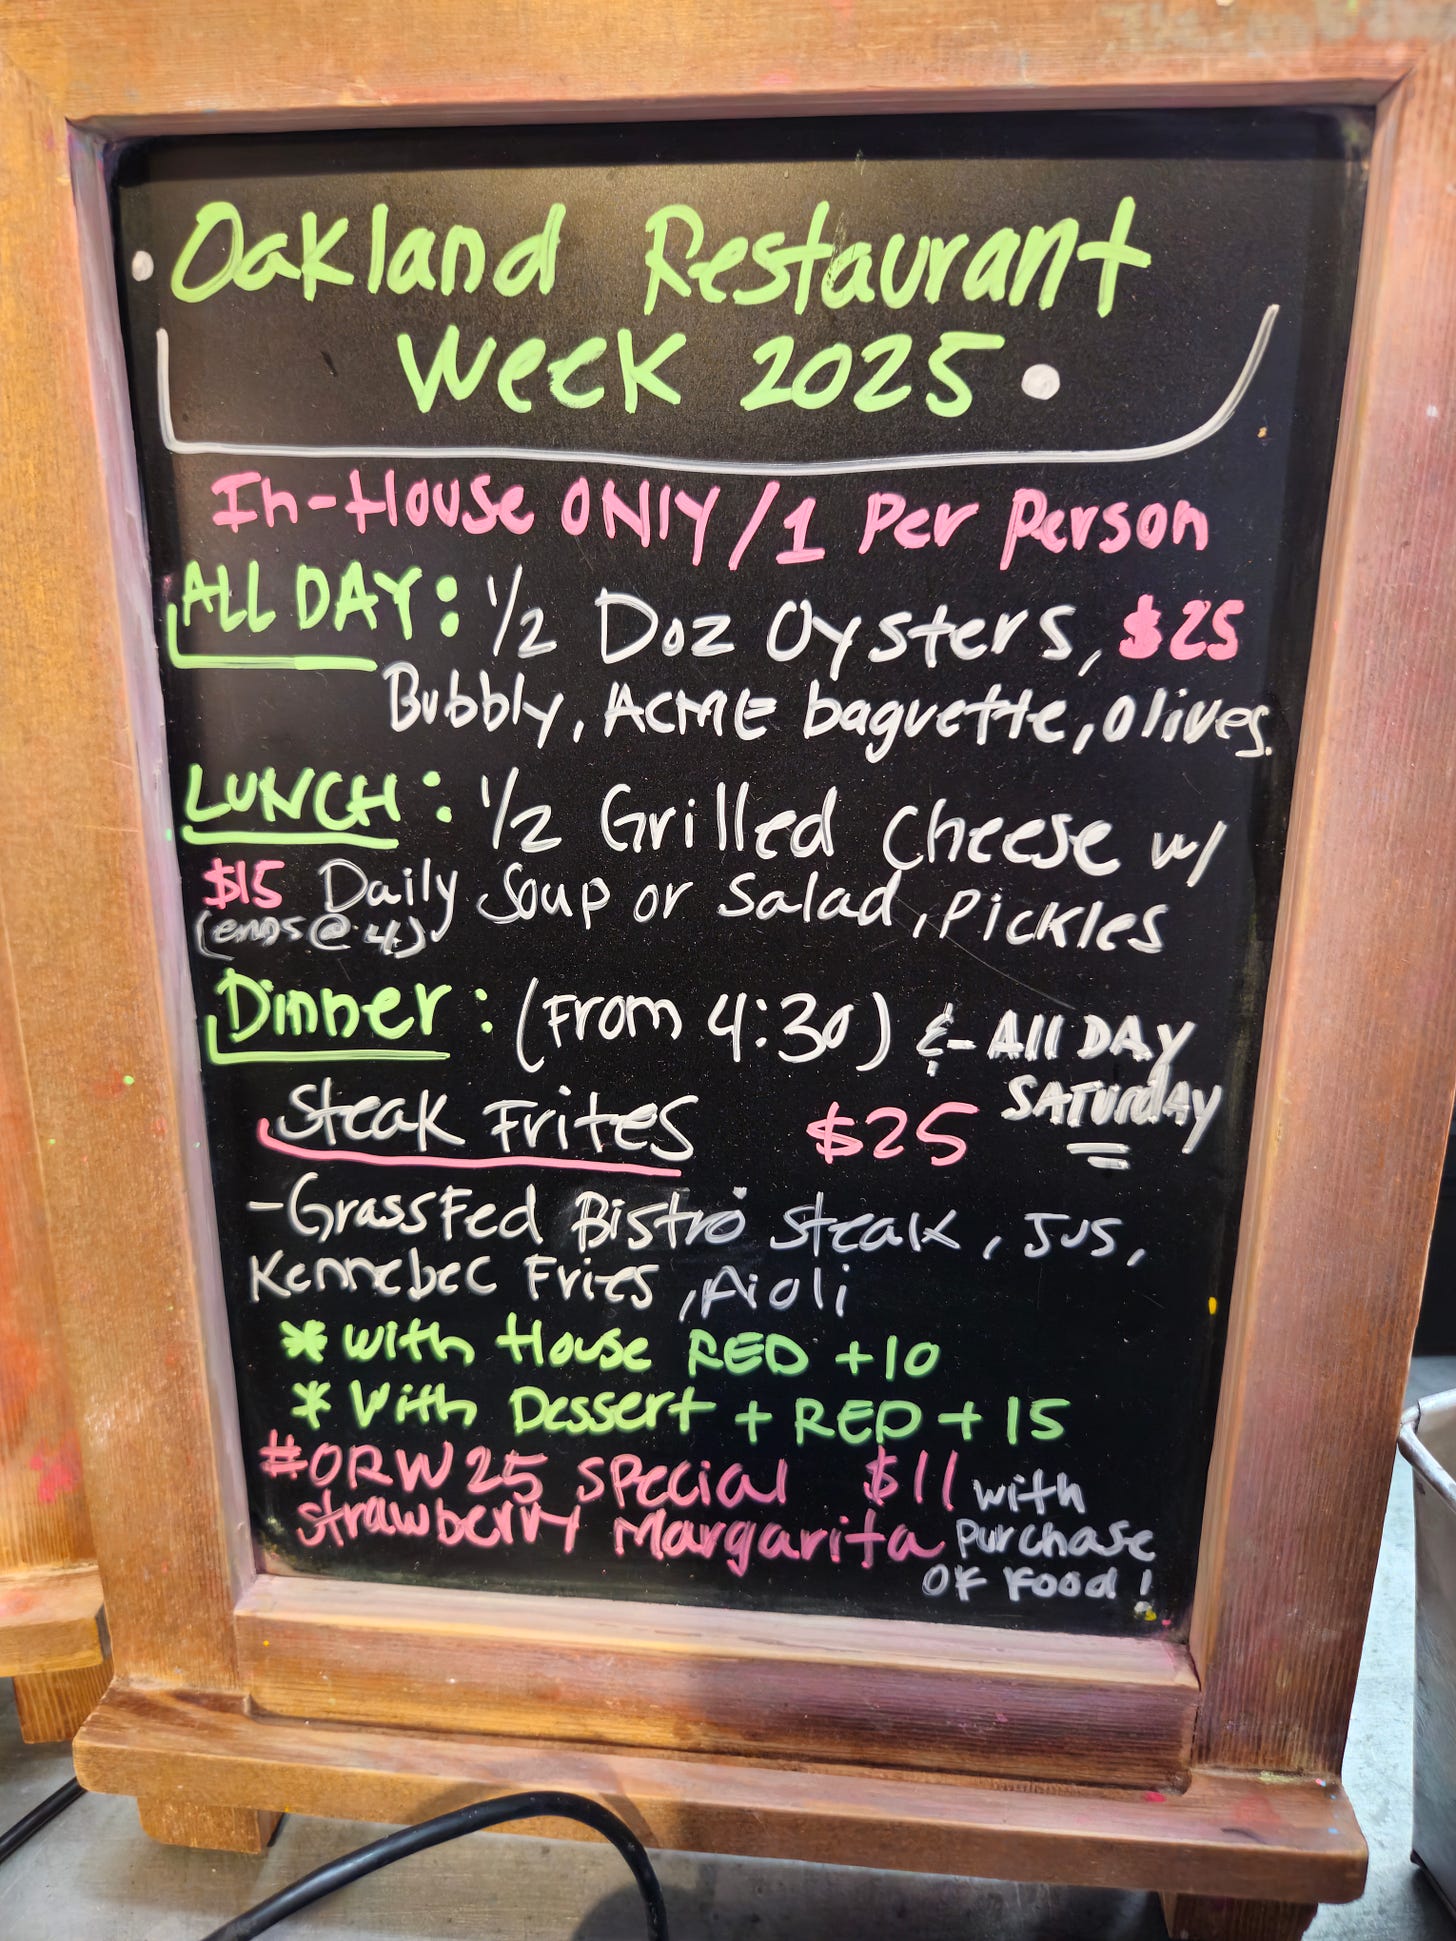 Oakland Restaurant
Week 2025
In-House ONLY / 1 Per Person
ALL DAY: 1/2 Doz Oysters, $25
Bubbly, ACME baguette, Olives.
LUNCH: 1/2 Grilled Cheese w/
$15 Daily Soup or Salad, Pickles
(ends @ 4)
Dinner: (From 4:30) & All DAY
SATURDAY
Steak Frites $25
- GrassFed Bistro Steak, Jus,
Kennebec Fries, Aioli
* With House RED +10
* With Dessert + RED + 15
#ORW25 Special $11 with
Strawberry Margarita Purchase
OF FOOD!